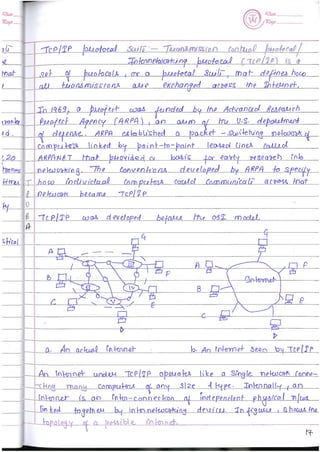 TCP/IP protocol Suite :- Transmission control protocol/
Internetworking protocol (TCP/IP) is a
set of protocols, or a protocol Suite, that defines how
all transmissions are exchanged across the Internet.
In 1969, a project was funded by the Advanced Research
Project Agency (ARPA), an arm of the U.S. department
of defense. ARPA established a packet-switching network of
computers linked by point-to-point leased lines called
ARPANET that provided a basis for early research into
networking. The conventions developed by ARPA to specify
how individual computers could communicate across that
network became TCP/IP
TCP/IP was developed before the OSI model.
G
G
A
F
A
F
B
Internet
B
C
E
E
C
D
D
a. An actual internet
b. An Internet seen by TCP/IP
An Internet under TCP/IP operates like a single network conne-
cting many computers of any size & type. Internally, an
internet is an inter-connection of independent physical
linked together by internetworking devices. In figure, shows the
topology of a possible internet.
17